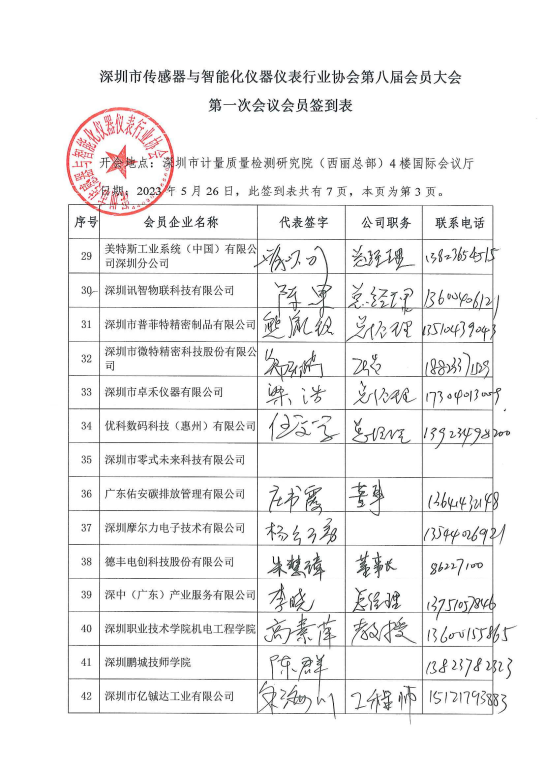 深圳市传感器与智能化仪器仪表行业协会第八届会员大会
第一次会议会员签到表
开会地点：深圳市计量质量检测研究院（西丽总部）4楼国际会议厅
日期：2023年5月26日，此签到表共有7页，本页为第3页。
序号 会员企业名称 代表签字 公司职务 联系电话
29 美特斯工业系统（中国）有限公司深圳分公司 总经理
30 深圳讯智物联科技有限公司 陈 总经理 13600406121
31 深圳市普菲特精密制品有限公司 熊 总经理 13510439043
32 深圳市微特精密科技股份有限公司
33 深圳市卓禾仪器有限公司 梁浩 总经理 17304013009
34 优科数码科技（惠州）有限公司 任文 总经理 13923498200
35 深圳市零式未来科技有限公司
36 广东佑安碳排放管理有限公司 庄书霞 董事 13641432148
37 深圳摩尔力电子技术有限公司 杨 13544026921
38 德丰电创科技股份有限公司 朱慧 董事长 86227100
39 深中（广东）产业服务有限公司 李晓 总经理 13751057846
40 深圳职业技术学院机电工程学院 高素萍 教授 13600155865
41 深圳鹏城技师学院 陈群 13823782323
42 深圳市亿铖达工业有限公司 工程师 15121793883